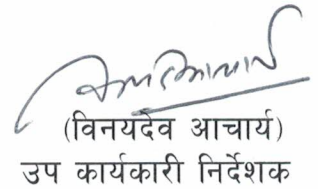 (विनयदेव आचार्य)
उप कार्यकारी निर्देशक